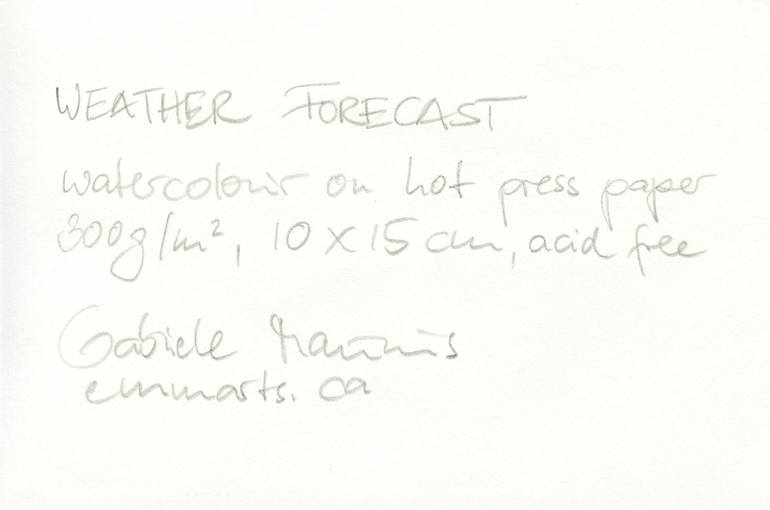 WEATHER FORECAST
watercolour on hot press paper
300g/m², 10 x 15 cm, acid free
Gabriele
emmarts.ca